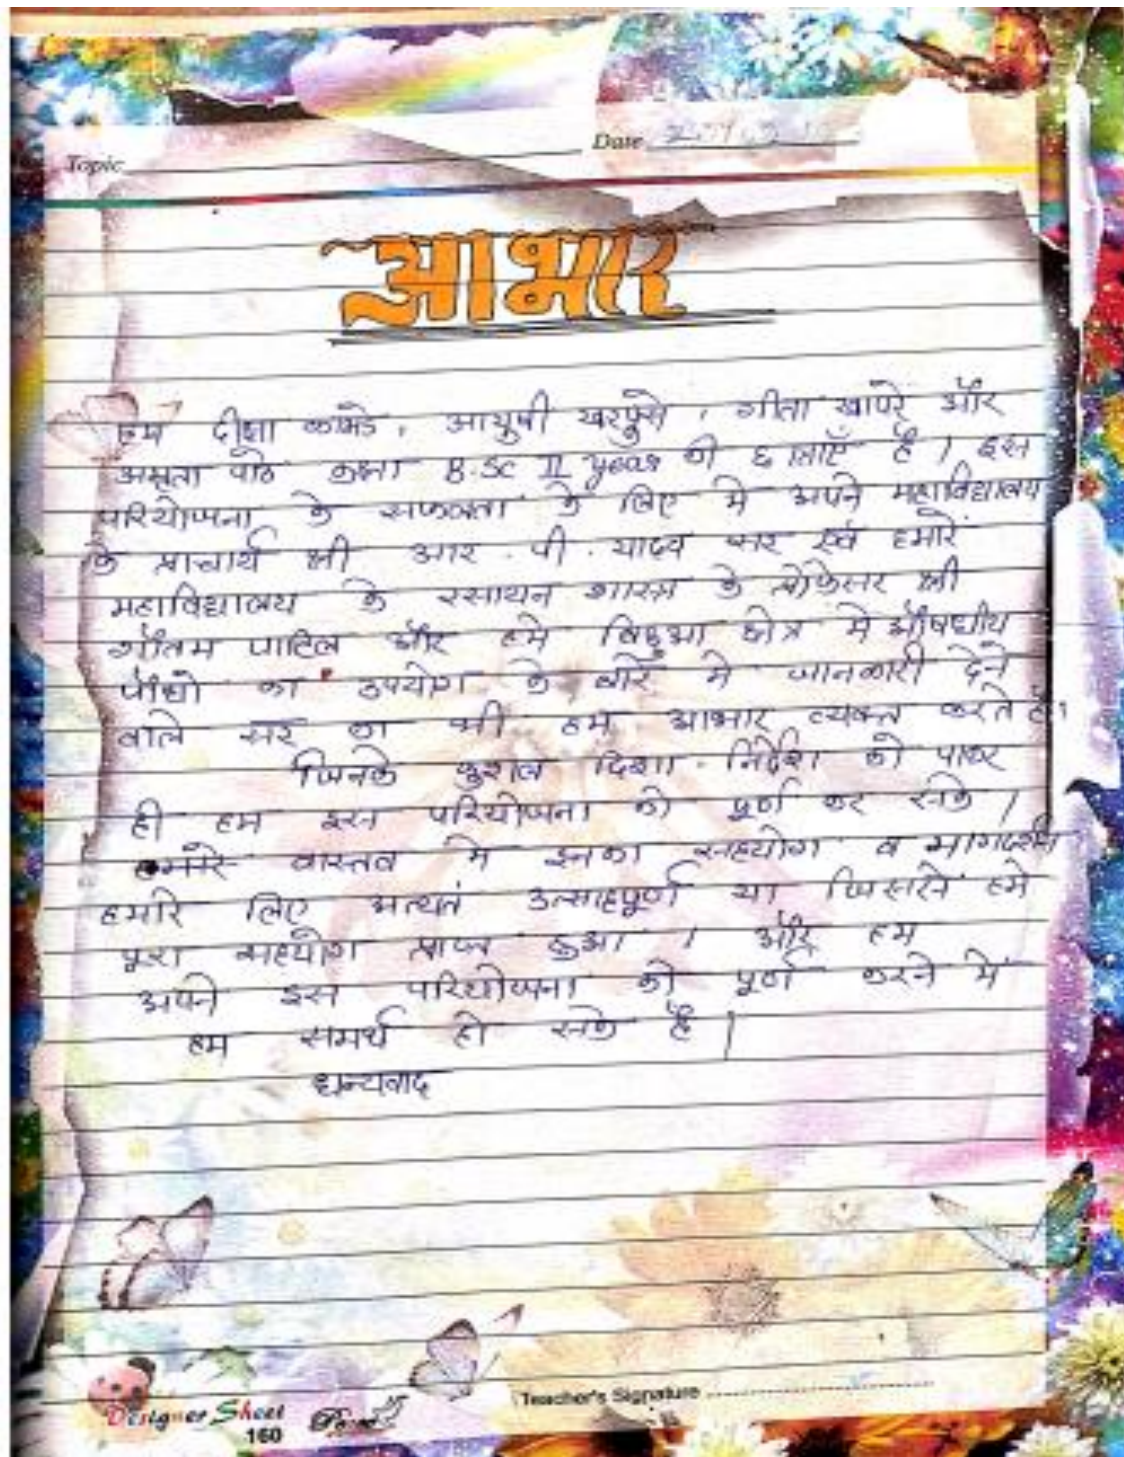 Date
Topic
आभार
हम दीक्षा कामडे, आयुषी खरपुसे, गीता खापरे और
अमृता पाठे कक्षा B.Sc II year की छात्राएँ है । इस
परियोजना के सफलता के लिए मे अपने महाविद्यालय
के प्राचार्य श्री आर . पी . यादव सर एवं हमारे
महाविद्यालय के रसायन शास्त्र के प्रोफेसर श्री
गौतम पाटिल और हमे बिछुआ क्षेत्र मे औषधीय
पौधो का उपयोग के बारे मे जानकारी देने
वाले सर का भी हम आभार व्यक्त करते है।
जिनके कुशल दिशा - निर्देश को पाकर
ही हम इस परियोजना को पूर्ण कर सके ।
वास्तव मे इनका सहयोग व मार्गदर्शन
हमारे लिए अत्यतं उत्साहपूर्ण था जिससे हमे
पूरा सहयोग प्राप्त हुआ । और हम
अपने इस परियोजना को पूर्ण करने में
हम समर्थ हो सके है |
धन्यवाद
Teacher's Signature
Designer Sheet
160